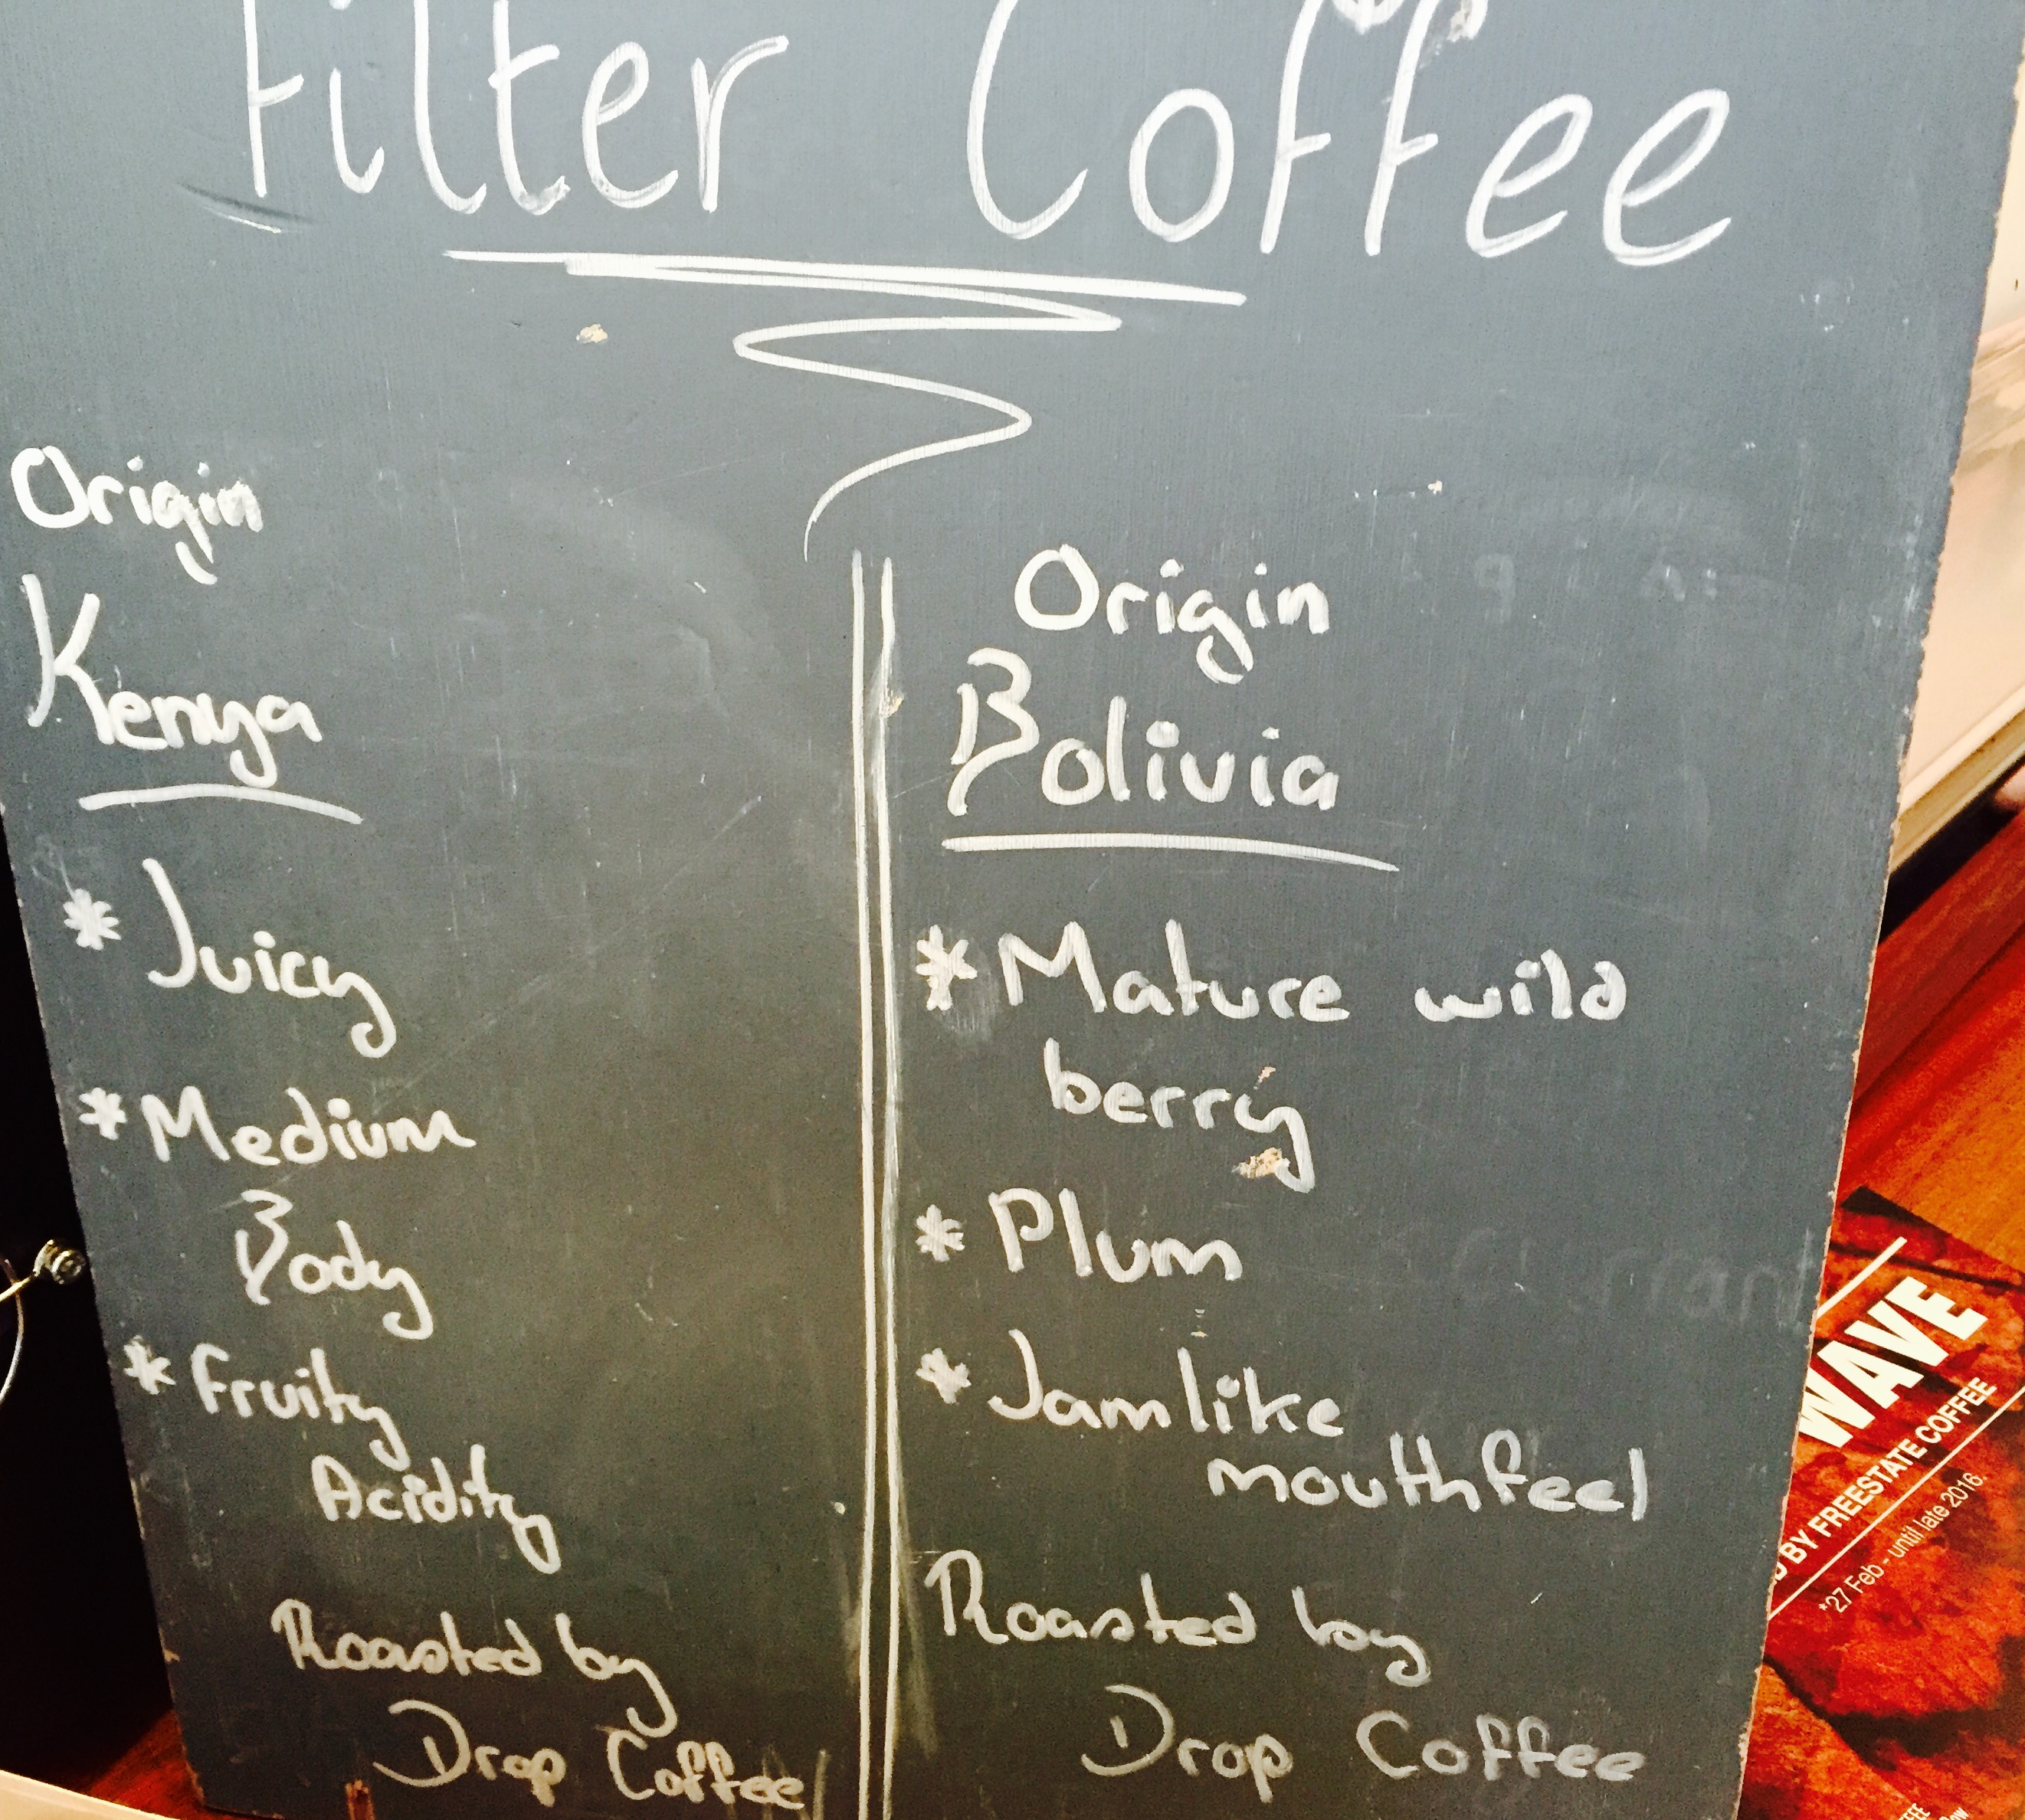 Filter Coffee
Origin
Kenya
* Juicy
* Medium
Body
* Fruity
Acidity
Roasted by
Drop Coffee
Origin
Bolivia
* Mature wild
berry
* Plum
* Jamlike
mouthfeel
Roasted by
Drop Coffee
WAVE
BY FREESTATE COFFEE
*27 Feb - until late 2016.